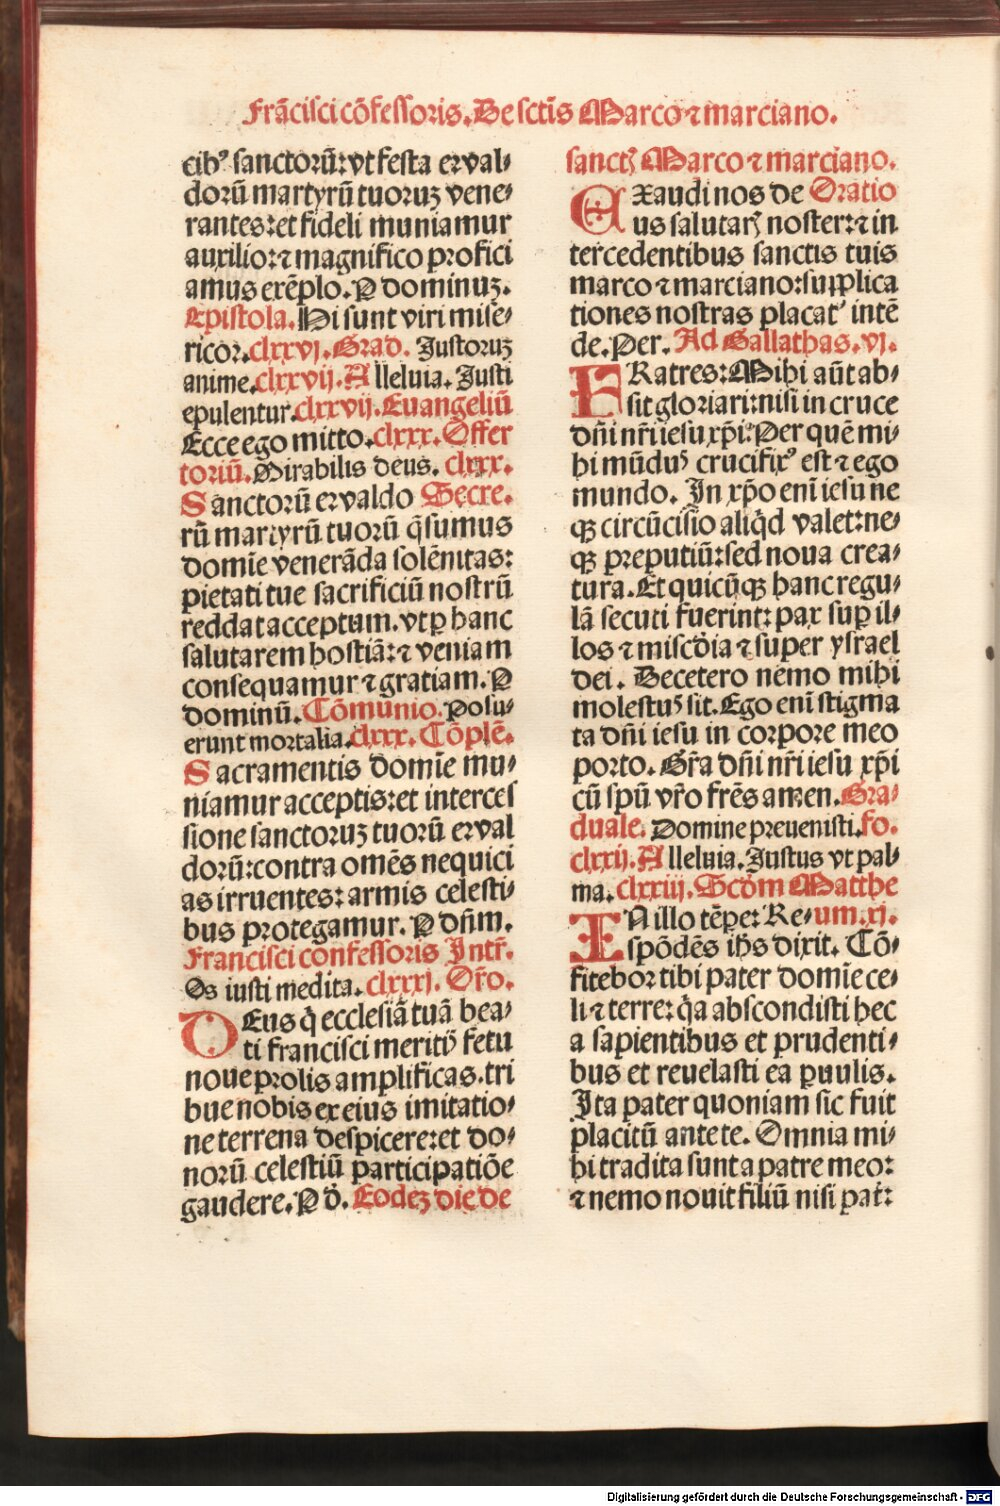 Frãcisci cõfessoris. De sctĩs Marco ⁊ marciano.
cibꝰ sanctorũ: vt festa erval⸗
dorũ martyrũ tuoruꝫ vene⸗
rantes: et fideli muniamur
auxilio: ⁊ magnifico profici
amus exẽplo. P dominuꝫ.
Epistola. Hi sunt viri mise⸗
ricor. clxxvj. Grad. Justoruꝫ
anime. clxxvij. Alleluia. Justi
epulentur. clxxvij. Euangeliũ
Ecce ego mitto. clxxx. Offer
toriũ. Mirabilis deus. clxxx.
Sanctorũ ervaldo Secre.
rũ martyrũ tuorũ q̃sumus
domĩe venerãda solẽnitas:
pietati tue sacrificiũ nostrũ
reddat acceptum. vt ꝑ hanc
salutarem hostiã: ⁊ veniam
consequamur ⁊ gratiam. P
dominũ. Cõmunio. Posu⸗
erunt mortalia. clxxx. Cõplẽ.
Sacramentis domĩe mu⸗
niamur acceptis: et interces
sione sanctoruꝫ tuorũ erval
dorũ: contra omẽs nequici
as irruentes: armis celesti⸗
bus protegamur. P dñm.
Francisci confessoris Intr̃.
Os iusti medita. clxxxj. Or̃o.
DEus q̃ ecclesiã tuã bea⸗
ti francisci meritꝭ fetu
noue prolis amplificas. tri
bue nobis ex eius imitatio⸗
ne terrena despicere: et do⸗
norũ celestiũ participatiõe
gaudere. P d̃. Eodeꝫ die de
sanctꝭ Marco ⁊ marciano.
EXaudi nos de Oratio
us salutarꝭ noster: ⁊ in
tercedentibus sanctis tuis
marco ⁊ marciano: supplica
tiones nostras placatᷣ intẽ
de. Per. Ad Gallathas. vj.
FRatres: Mihi aũt ab⸗
sit gloriari: nisi in cruce
dñi nr̃i iesu xp̃i: Per quẽ mi⸗
hi mũdus crucifixꝰ est ⁊ ego
mundo. In xp̃o enĩ iesu ne
qꝫ circũcisio aliq̃d valet: ne⸗
qꝫ preputiũ: sed noua crea⸗
tura. Et quicũqꝫ hanc regu⸗
lã secuti fuerint: pax suꝑ il⸗
los ⁊ misc̃dia ⁊ super ysrael
dei. Decetero nemo mihi
molestus sit. Ego enĩ stigma
ta dñi iesu in corpore meo
porto. Gr̃a dñi nr̃i iesu xp̃i
cũ spũ vr̃o frẽs amen. Gra⸗
duale. Domine preuenisti. fo.
clxxij. Alleluia. Justus vt pal⸗
ma. clxxiij. Scd̃m Matthe
IN illo tẽpe: Re⸗ um. xj.
spõdẽs ih̃s dixit. Cõ⸗
fitebor tibi pater domĩe ce⸗
li ⁊ terre: q̃a abscondisti hec
a sapientibus et prudenti⸗
bus et reuelasti ea ꝑuulis.
Ita pater quoniam sic fuit
placitũ ante te. Omnia mi⸗
hi tradita sunt a patre meo:
⁊ nemo nouit filiũ nisi pat̃:
Digitalisierung gefördert durch die Deutsche Forschungsgemeinschaft - DFG